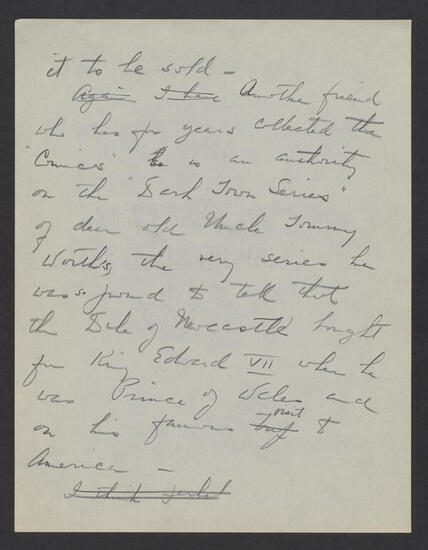 it to be sold –
Again I have Another friend
who has for years collected the
"Comics" is an authority
on the "Dark Town Series"
of dear old Uncle Tommy
Worth's, the very series he
was so proud to tell that
the Duke of Newcastle bought
for King Edward VII when he
was Prince of Wales and
on his famous visit to
America –
I think